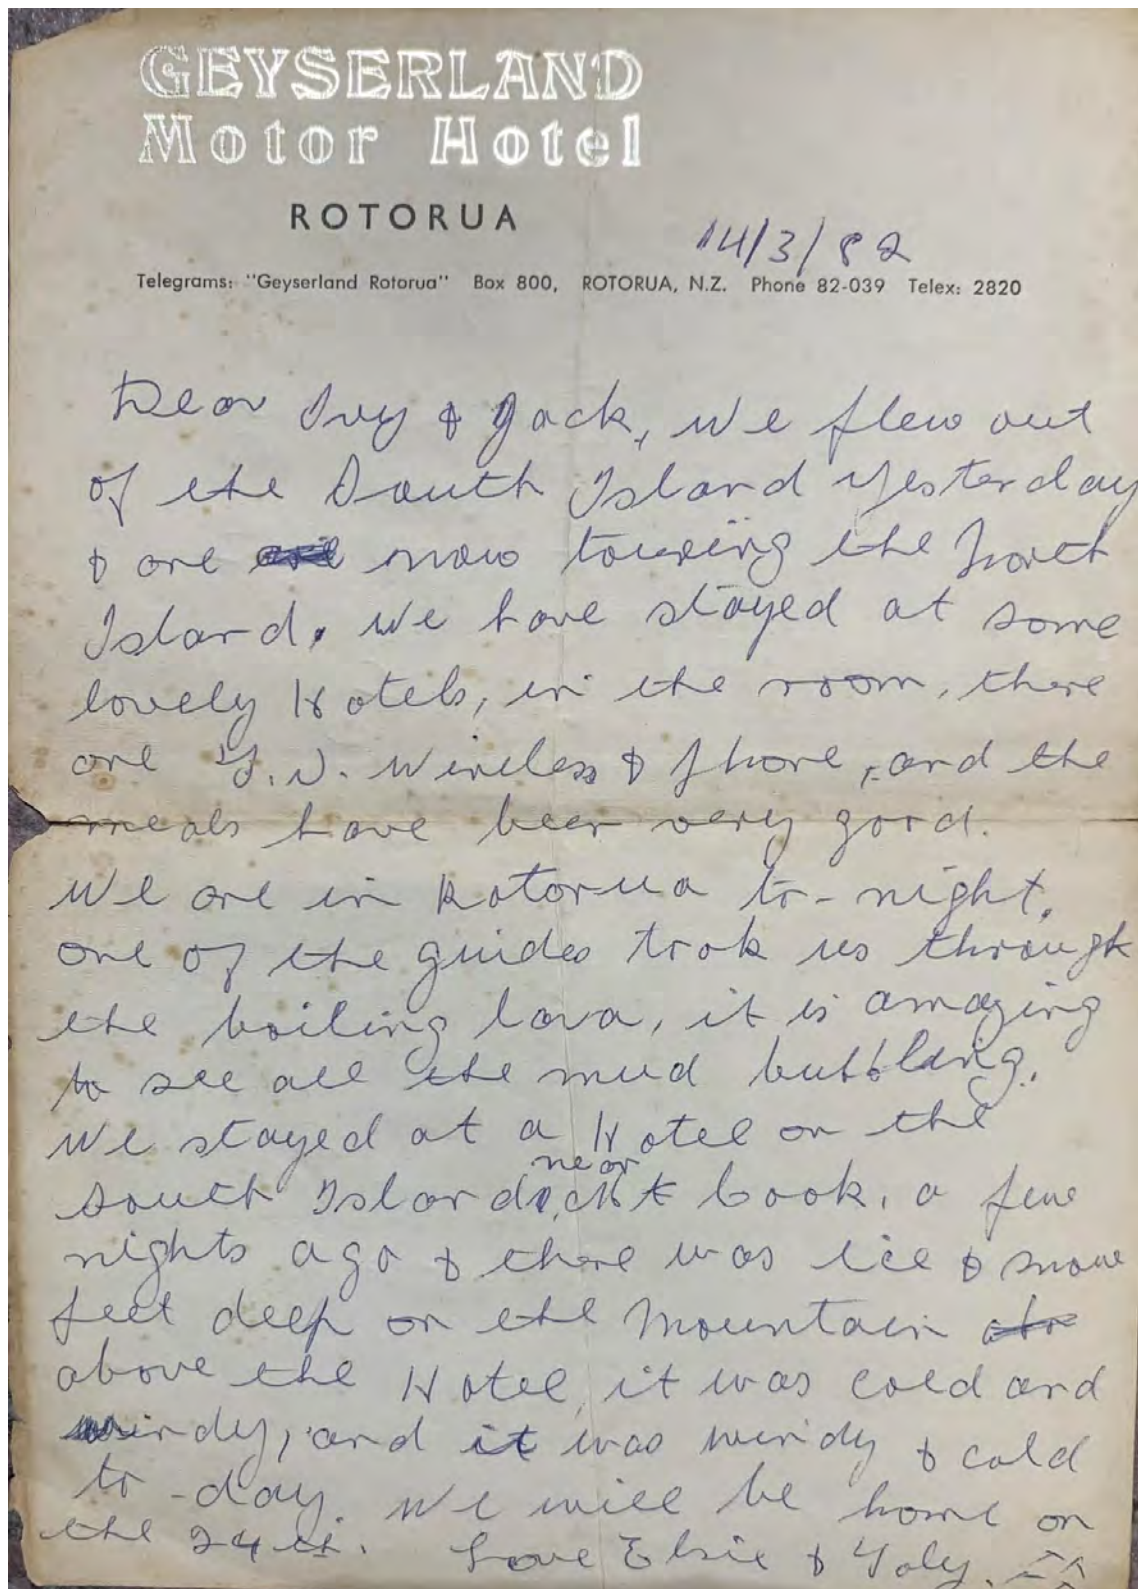 GEYSERLAND
Motor Hotel
ROTORUA
14/3/82
Telegrams: "Geyserland Rotorua" Box 800, ROTORUA, N.Z. Phone 82-039 Telex: 2820
Dear Ivy & Jack, we flew out
of the South Island yesterday
& are now touring the North
Island. We have stayed at some
lovely Hotels, in the room, there
are T.V. Wireless & Phone, and the
meals have been very good.
We are in Rotorua to-night.
one of the guides took us through
the boiling lava, it is amazing
to see all the mud bubbling.
We stayed at a Hotel on the
South Island, near Mt Cook, a few
nights ago & there was ice & snow
feet deep on the Mountain
above the Hotel, it was cold and
windy, and it was windy & cold
to-day. We will be home on
the 24th. Love Elsie &